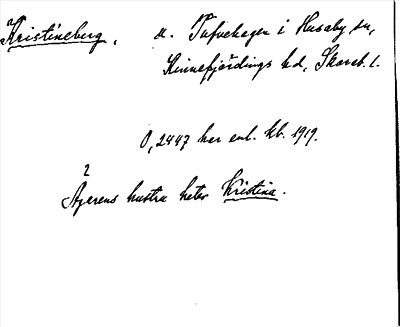 Kristineberg, u. Tufvehagen i Husaby sn,
Kinnefjärdings hd, Skarab. l.
0,2447 har enl. kb. 1919.
2
Ägarens hustru heter Kristina.